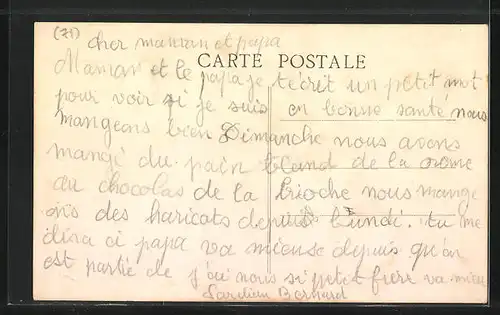 (71)
cher maman et papa
CARTE POSTALE
Maman et le papa je técrit un petit mot
pour voir si je suis en bonne santé nous
mangeons bien Dimanche nous avons
mangé du pain bland de la crème
du chocolas de la brioche nous mange
ons des haricats depuis lundi. tu me
dira ci papa va mieuse depuis qu'on
est partie de j'ai nous si petit frere va mieu
Bernard